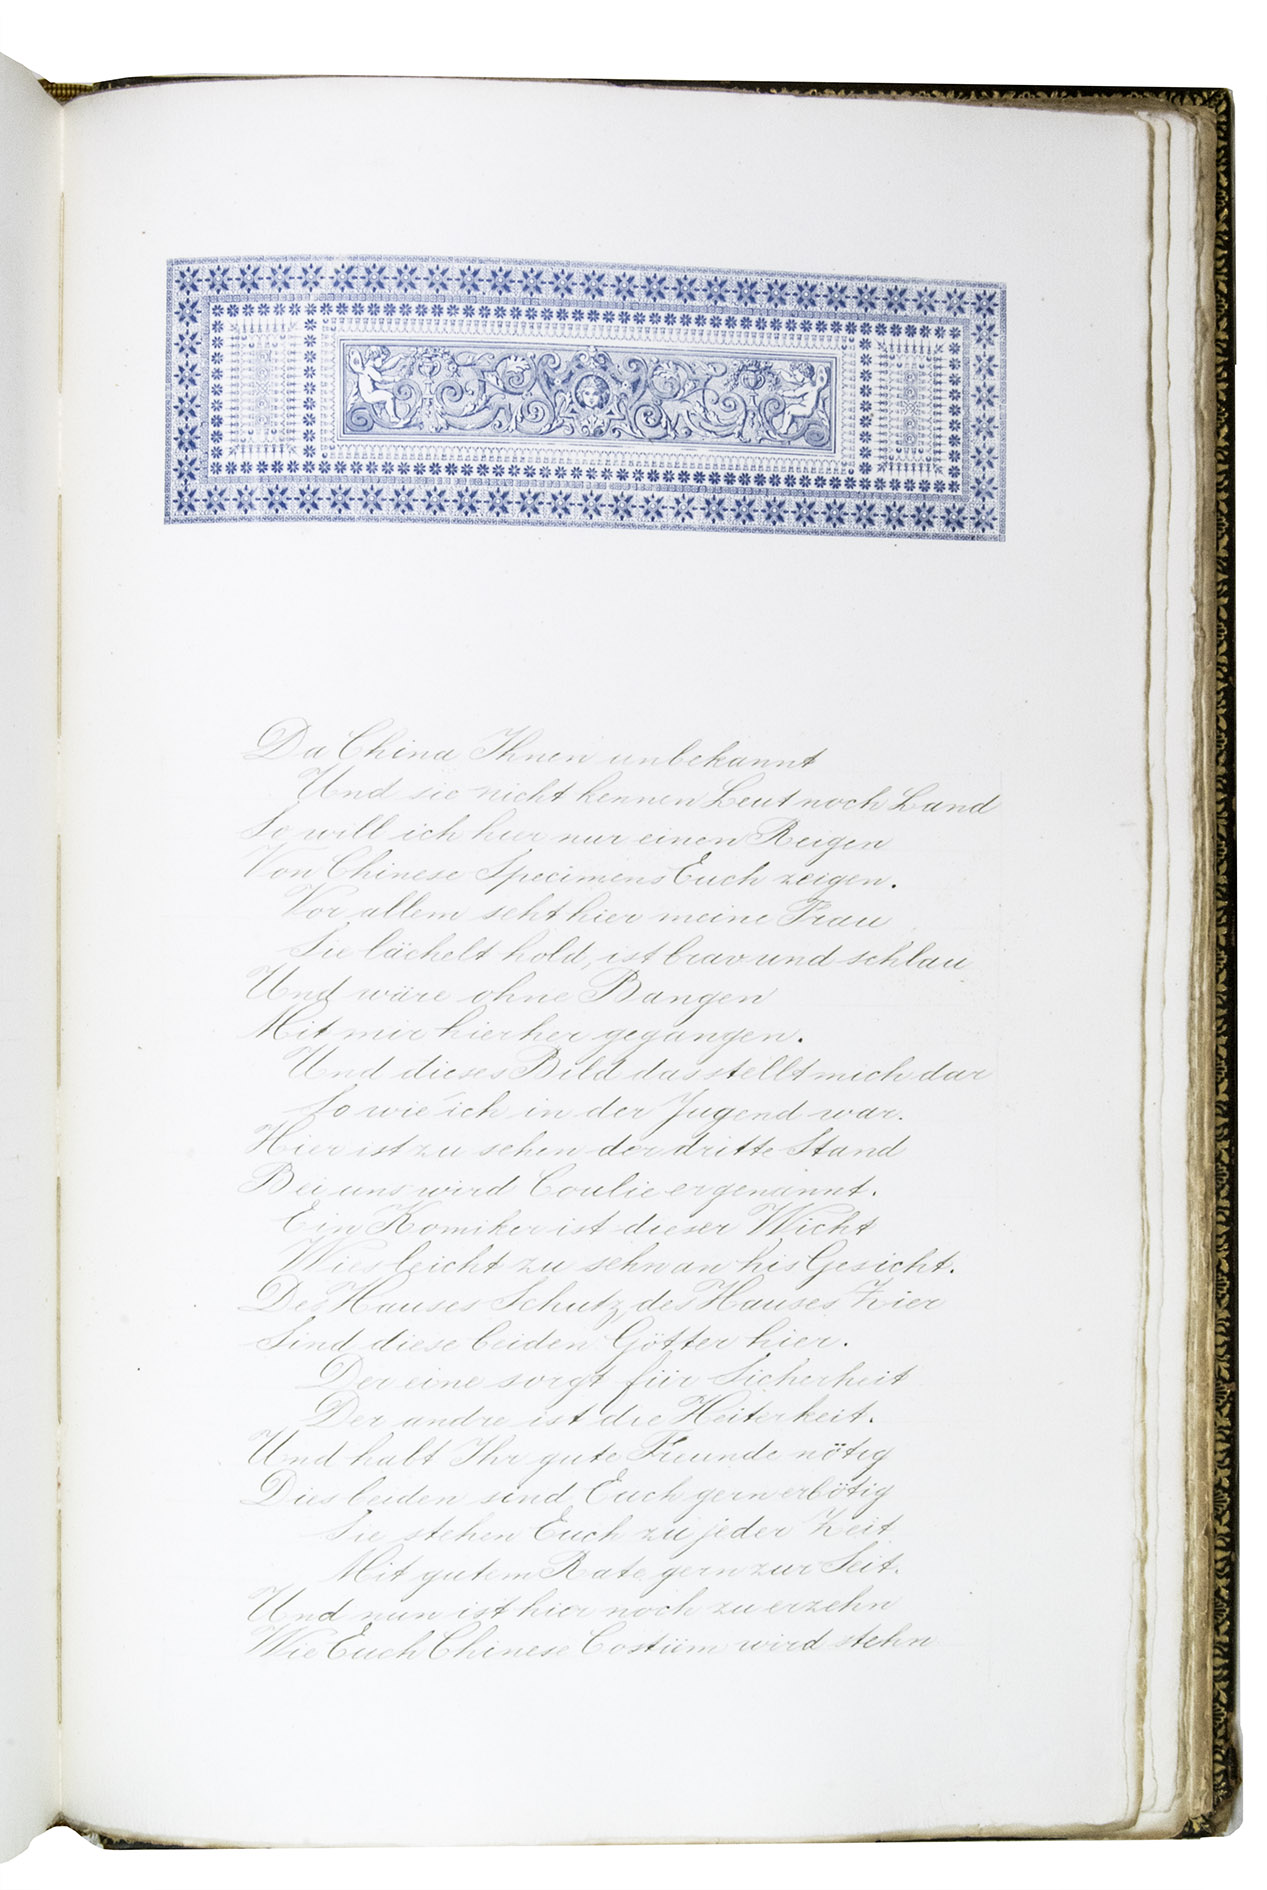 Da China Ihnen unbekannt
Und sie nicht kennen Leut noch Land
So will ich hier nur einen Reigen
Von Chinese Specimens Euch zeigen.
Vor allem seht hier meine Frau
Sie lächelt hold, ist brav und schlau
Und wäre ohne Bangen
Mit mir hierher gegangen.
Und dieses Bild das stellt mich dar
So wie ich in der Jugend war.
Hier ist zu sehen der dritte Stand
Bei uns wird Coulie er genannt.
Ein Komiker ist dieser Wicht
Wies leicht zu sehn an his Gesicht.
Des Hauses Schutz, des Hauses Zier
Sind diese beiden Götter hier.
Der eine sorgt für Sicherheit
Der andre ist die Heiterkeit.
Und habt Ihr gute Freunde nötig
Dies beiden sind Euch gern erbötig
Sie stehen Euch zu jeder Zeit
Mit gutem Rate gern zur Seit.
Und nun ist hier noch zu erzehn
Wie Euch Chinese Costüm wird stehn